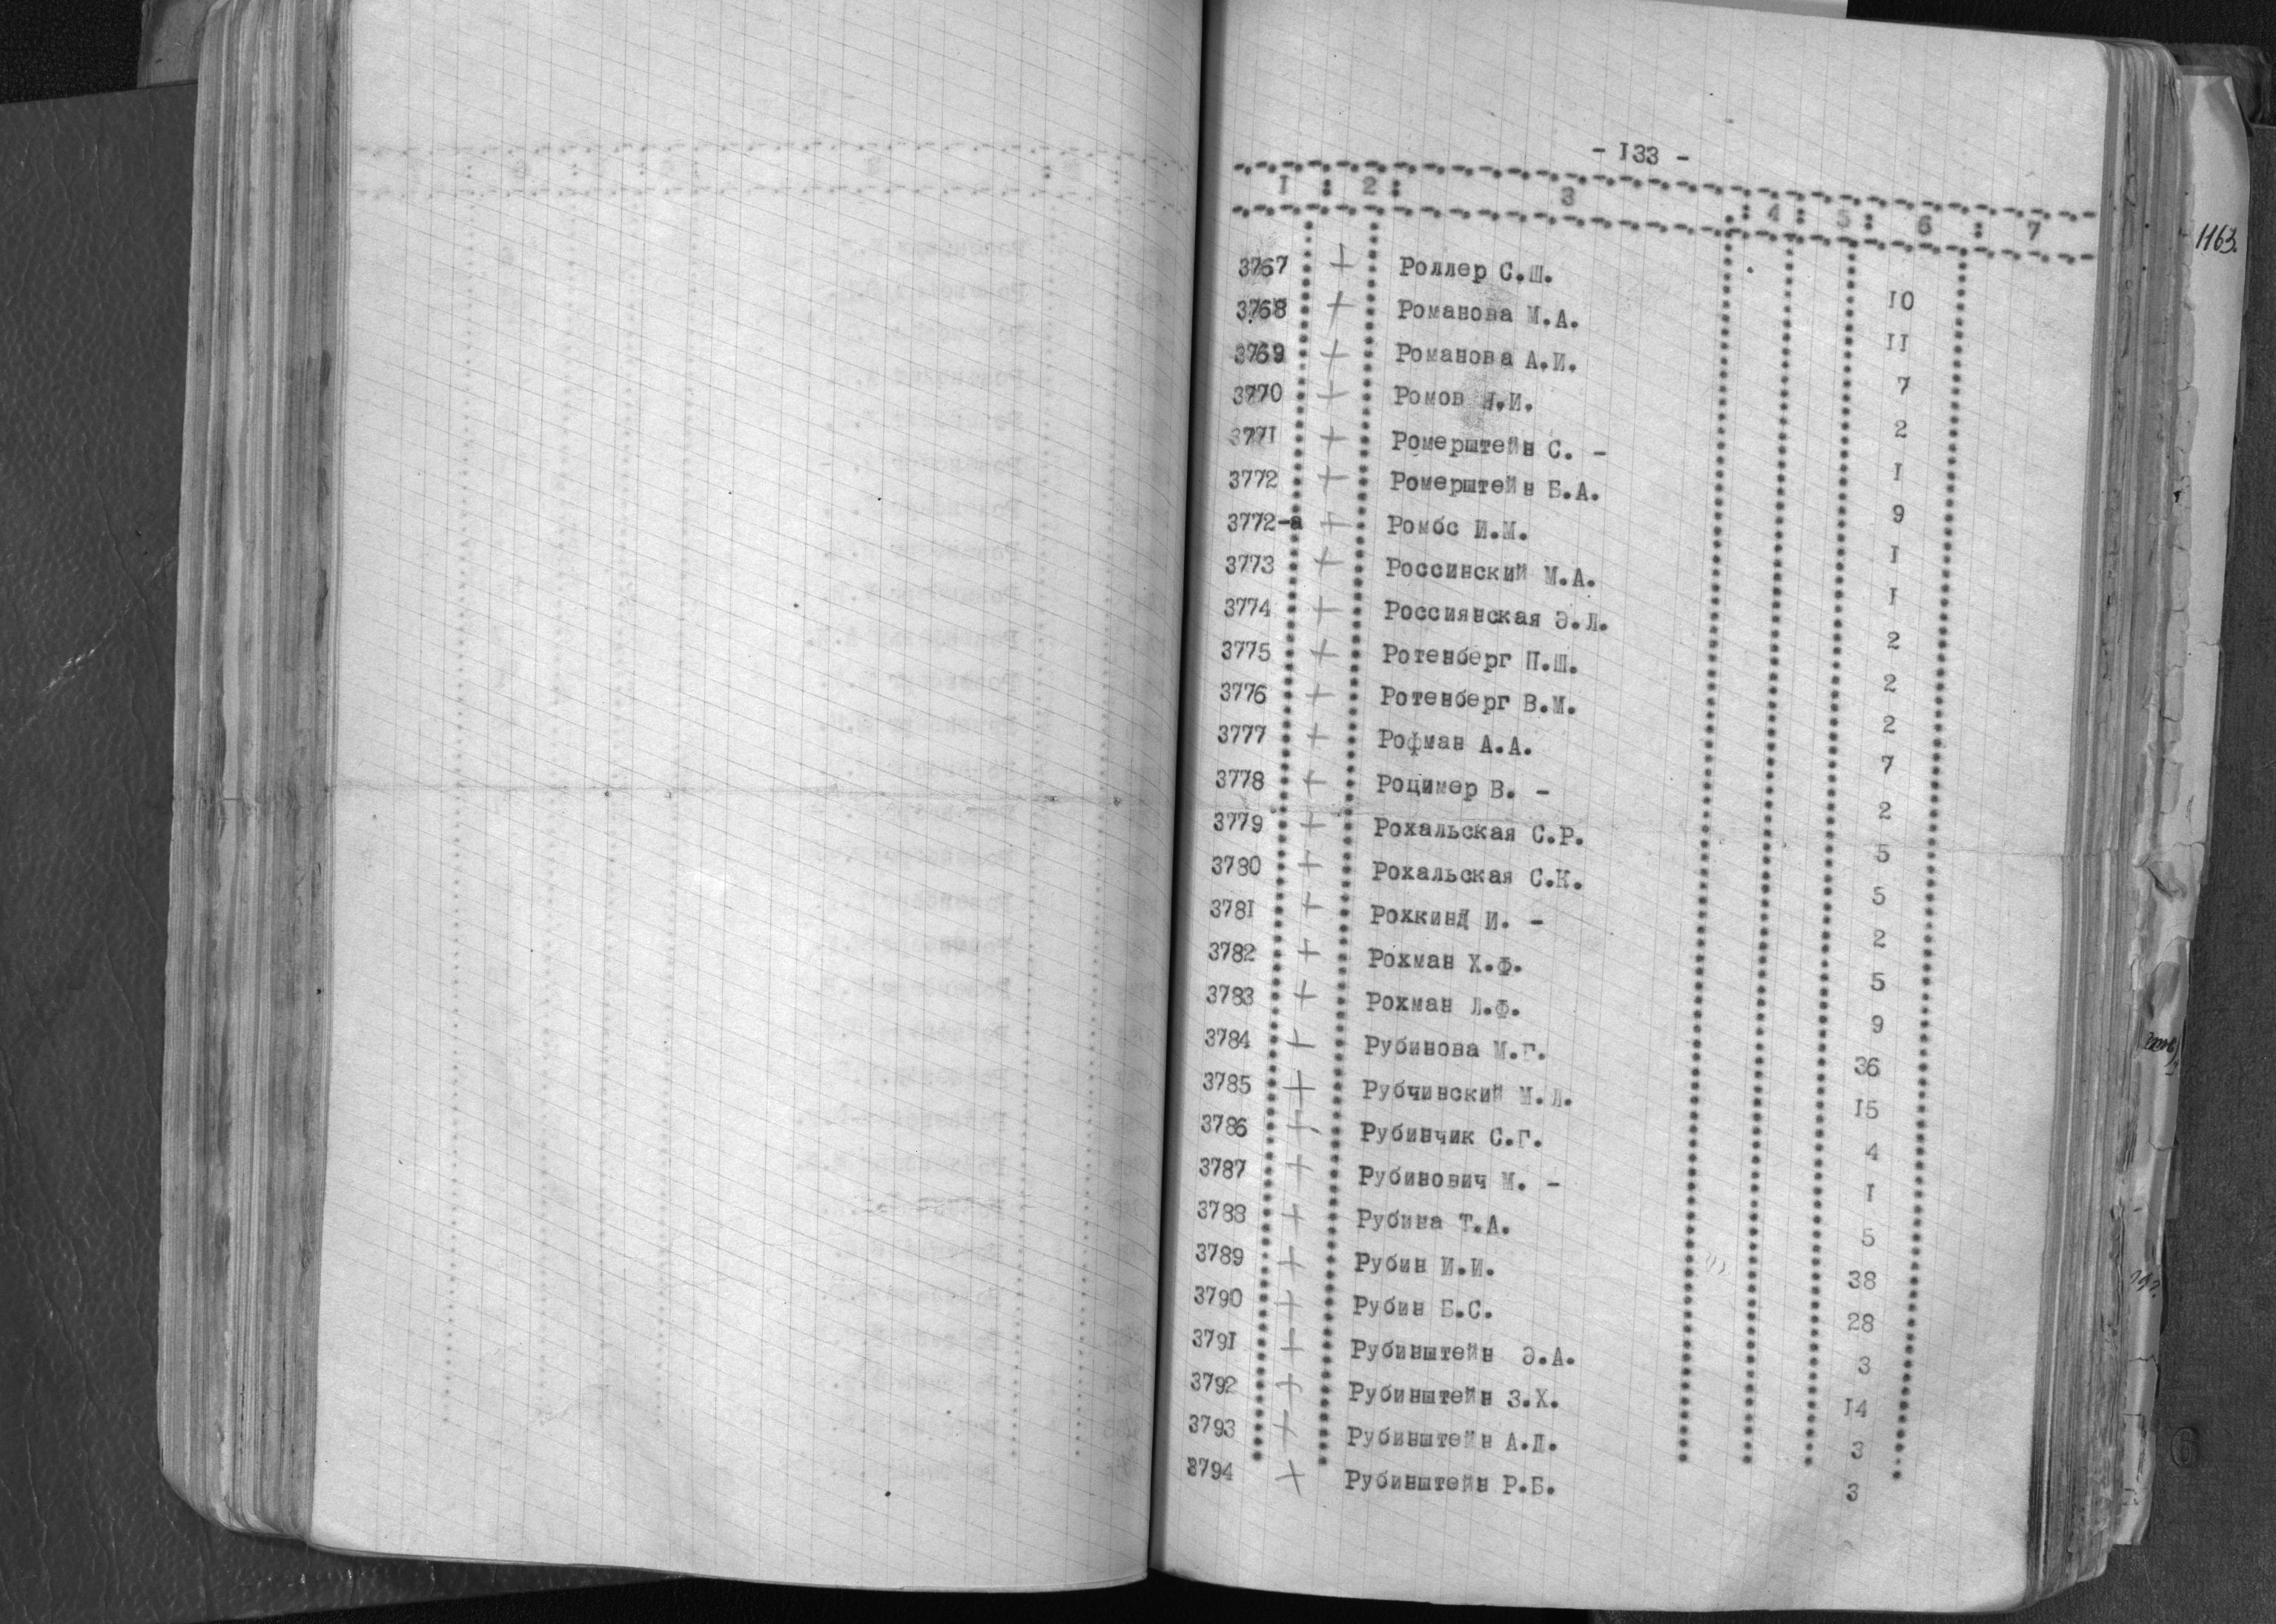 - 133 -
1163.
I : 2 : 3 : 4 : 5 : 6 : 7
3767 + Роллер С.Ш. 10
3768 + Романова М.А. II
3769 + Романова А.И. 7
3770 + Ромов Н.И. 2
3771 + Ромерштейн С. - I
3772 + Ромерштейн Б.А. 9
3772-а + Ромбс И.М. I
3773 + Россинский М.А. I
3774 + Россиянская Э.Л. 2
3775 + Ротенберг П.Ш. 2
3776 + Ротенберг В.М. 2
3777 + Рофман А.А. 7
3778 + Роцимер В. - 2
3779 + Рохальская С.Р. 5
3780 + Рохальская С.К. 5
3781 + Рохкинд И. - 2
3782 + Рохман Х.Ф. 5
3783 + Рохман Л.Ф. 9
3784 + Рубинова М.Г. 36
3785 + Рубчинский М.Л. 15
3786 + Рубинчик С.Г. 4
3787 + Рубинович М. - I
3788 + Рубина Т.А. 5
3789 + Рубин И.И. 38
3790 + Рубин Б.С. 28
3791 + Рубинштейн Э.А. 3
3792 + Рубинштейн З.Х. 14
3793 + Рубинштейн А.Л. 3
3794 + Рубинштейн Р.Б. 3